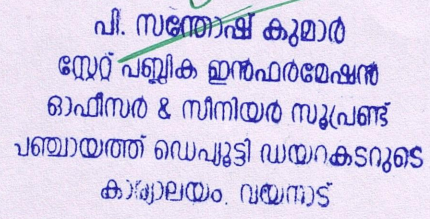 പി. സന്തോഷ് കുമാർ
സ്റ്റേറ്റ് പബ്ലിക ഇൻഫർമേഷൻ
ഓഫീസർ & സീനിയർ സൂപ്രണ്ട്
പഞ്ചായത്ത് ഡെപ്യൂട്ടി ഡയറകടറുടെ
കാര്യാലയം. വയനാട്